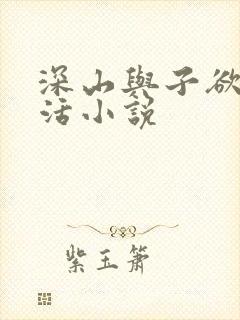 深山與子欲
活小說
紫玉簫